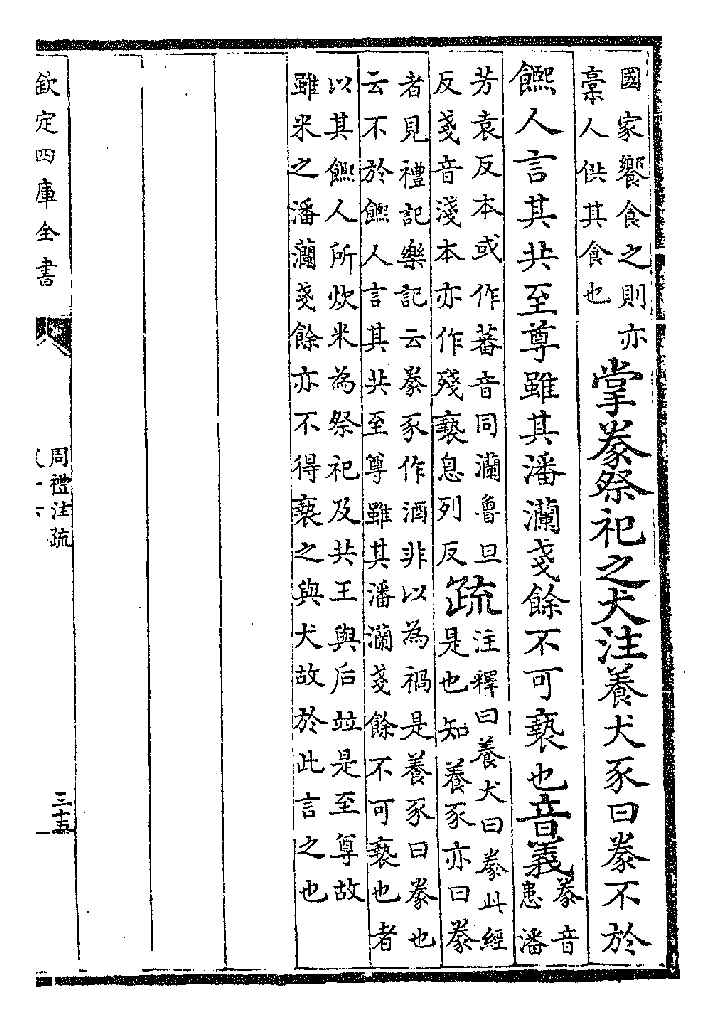 國家饗食之則亦
槀人供其食也
掌豢祭祀之犬注養犬豕曰豢不於
饎人言其共至尊雖其潘瀾戔餘不可䙝也音義豢音
患潘
芳袁反本或作蕃音同瀾魯旦
反戔音淺本亦作殘䙝息列反
疏
注釋曰養犬曰豢此經
是也知養豕亦曰豢
者見禮記樂記云豢豕作酒非以為禍是養豕曰豢也
云不於饎人言其共至尊雖其潘瀾戔餘不可䙝也者
以其饎人所炊米為祭祀及共王與后竝是至尊故
雖米之潘瀾戔餘亦不得䙝之與犬故於此言之也
欽定四庫全書
周禮注疏
三十五